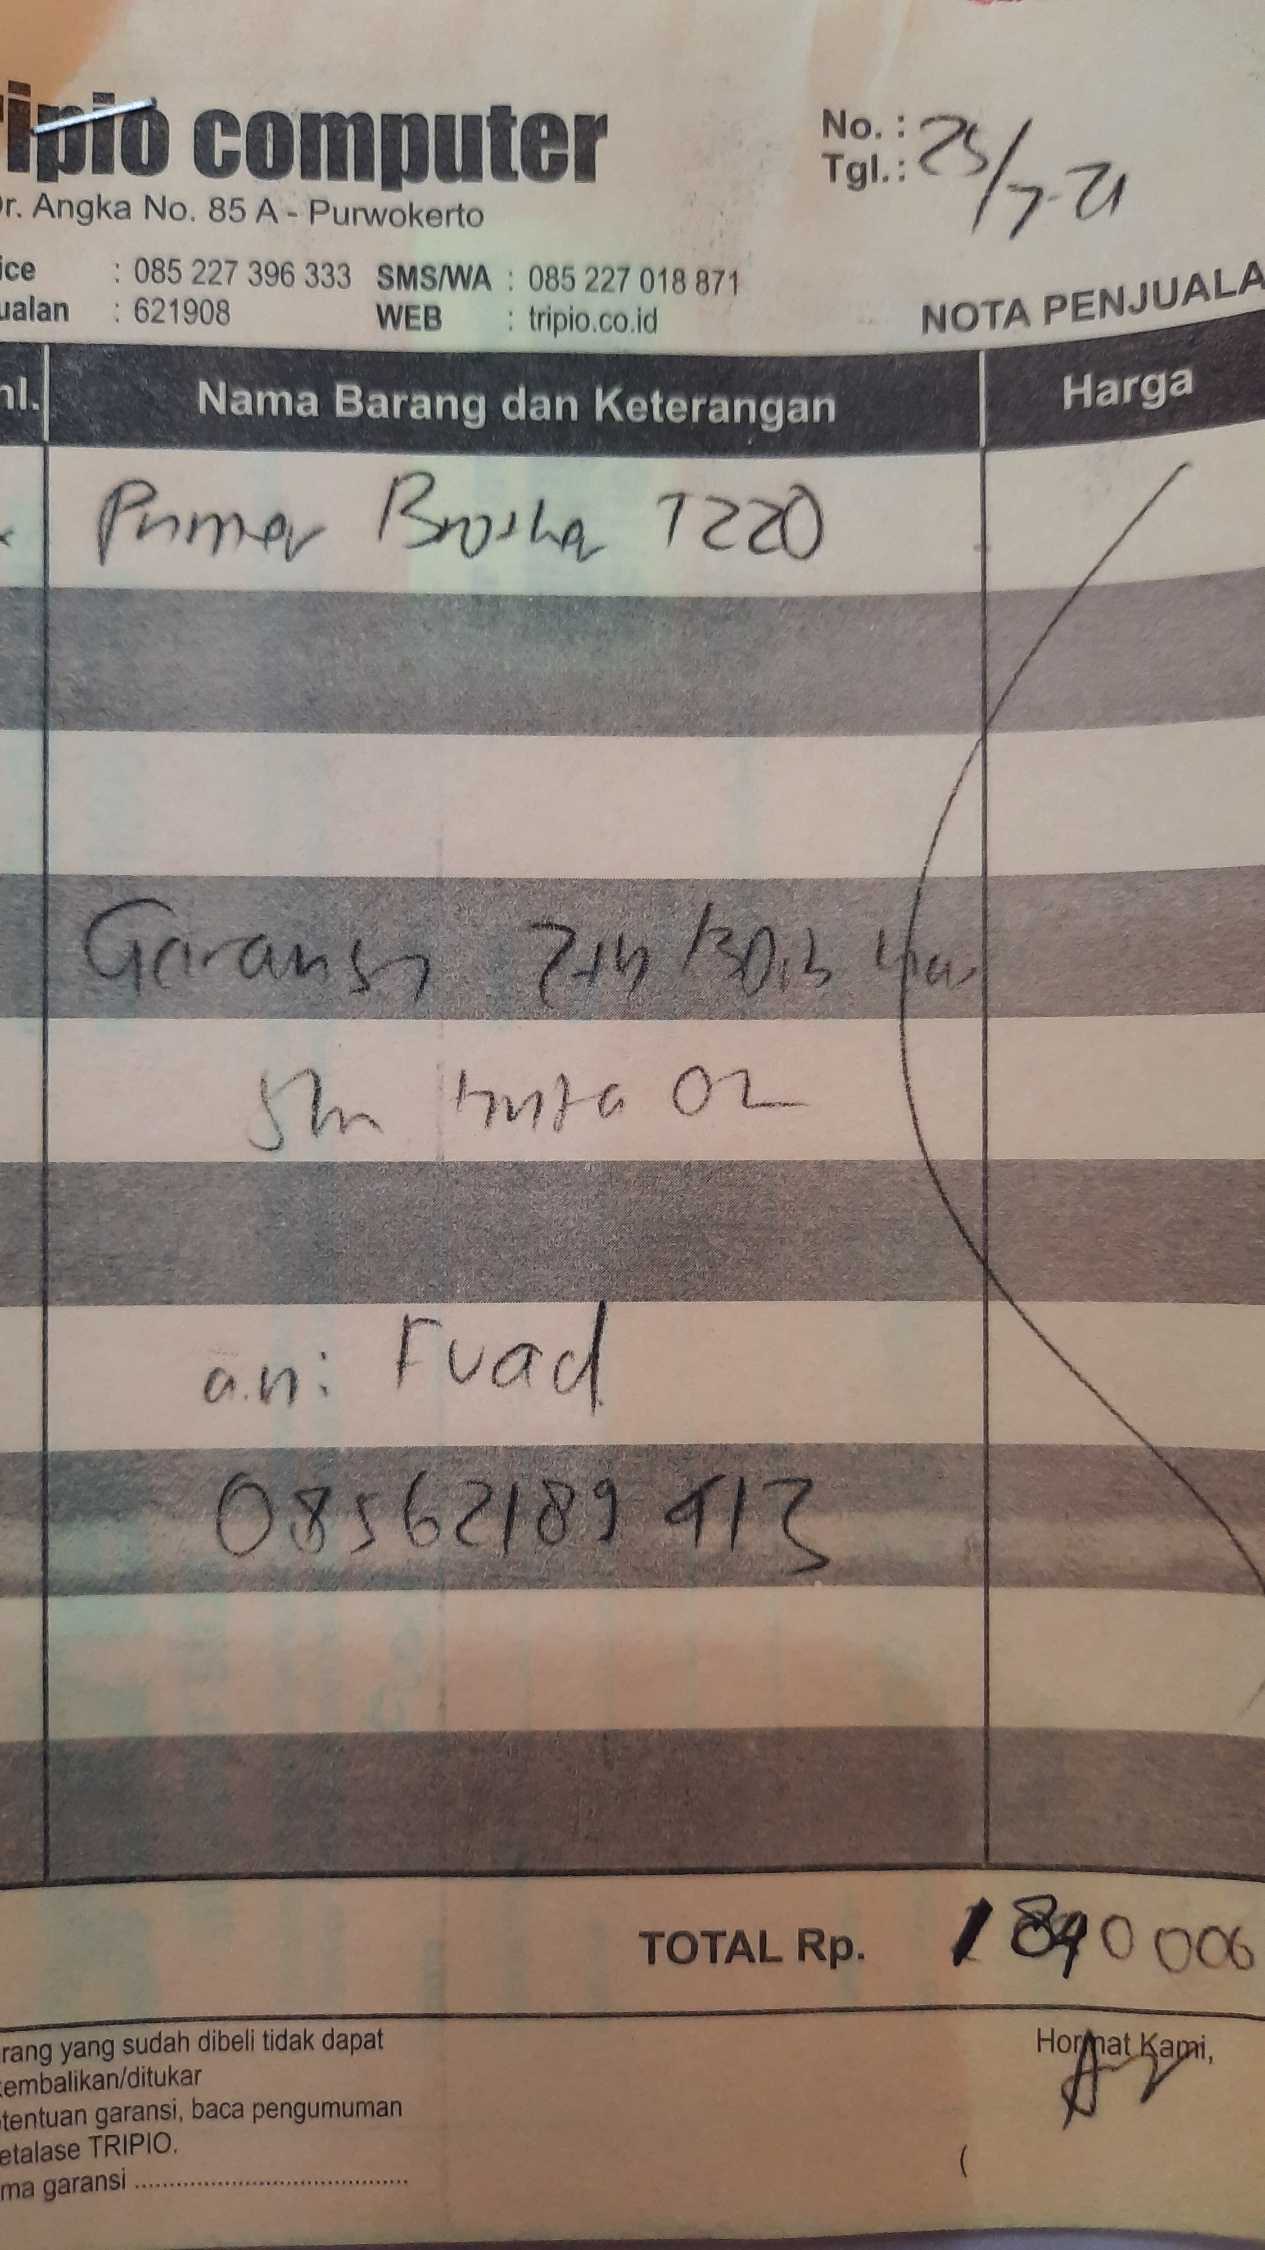 ripio computer
Dr. Angka No. 85 A - Purwokerto
No. :
Tgl.: 25/7-21
ice : 085 227 396 333 SMS/WA : 085 227 018 871
ualan : 621908 WEB : tripio.co.id
NOTA PENJUALA
hl. Nama Barang dan Keterangan Harga
Printer Brother T220
Garansi 2th/30rb
a.n: Fuad
08562189413
TOTAL Rp. 1890000
rang yang sudah dibeli tidak dapat
kembalikan/ditukar
tentuan garansi, baca pengumuman
etalase TRIPIO.
ma garansi
Hormat Kami,
(